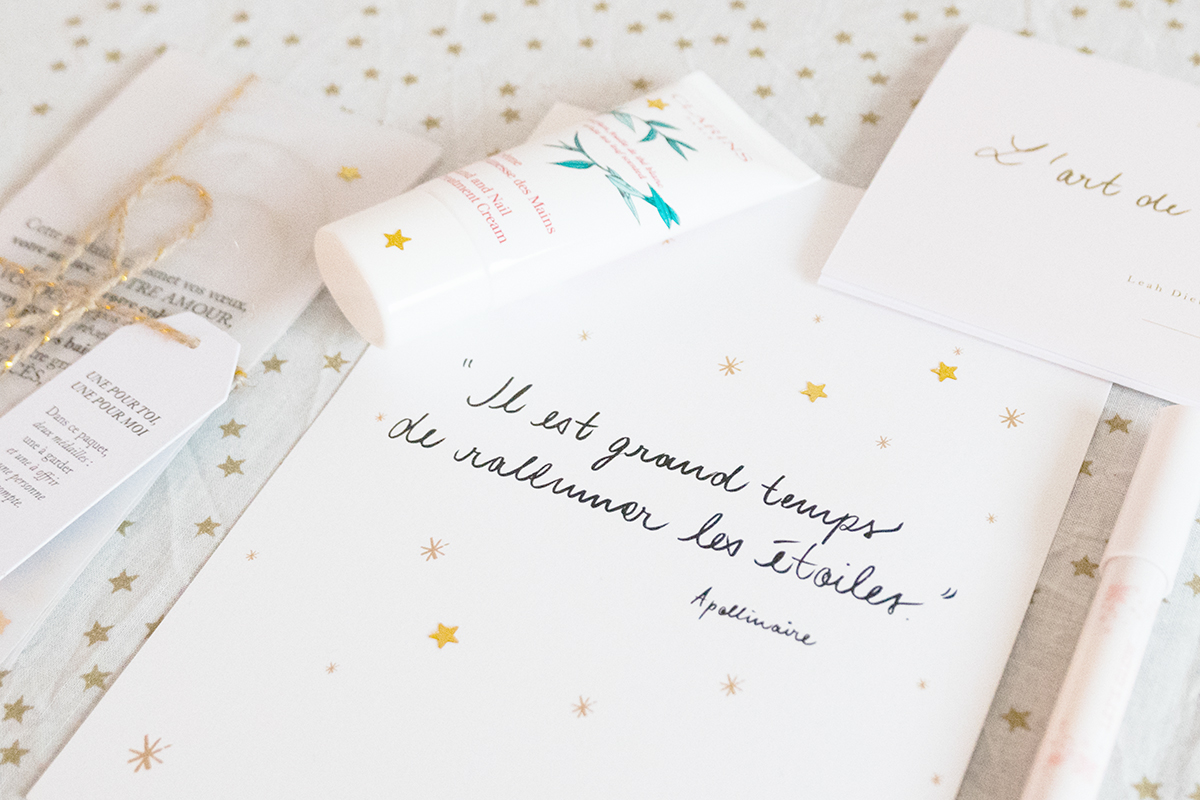 "Il est grand temps
de rallumer les étoiles."
Apollinaire
CLARINS
Jeunesse des Mains
Hand and Nail
Treatment Cream
L'art de
Leah Die
Cette
met vos vœux,
votre
TRE AMOUR.
UNE POUR TOI,
UNE POUR MOI
Dans ce paquet,
deux médailles :
une à garder
et une à offrir
une personne
compte.